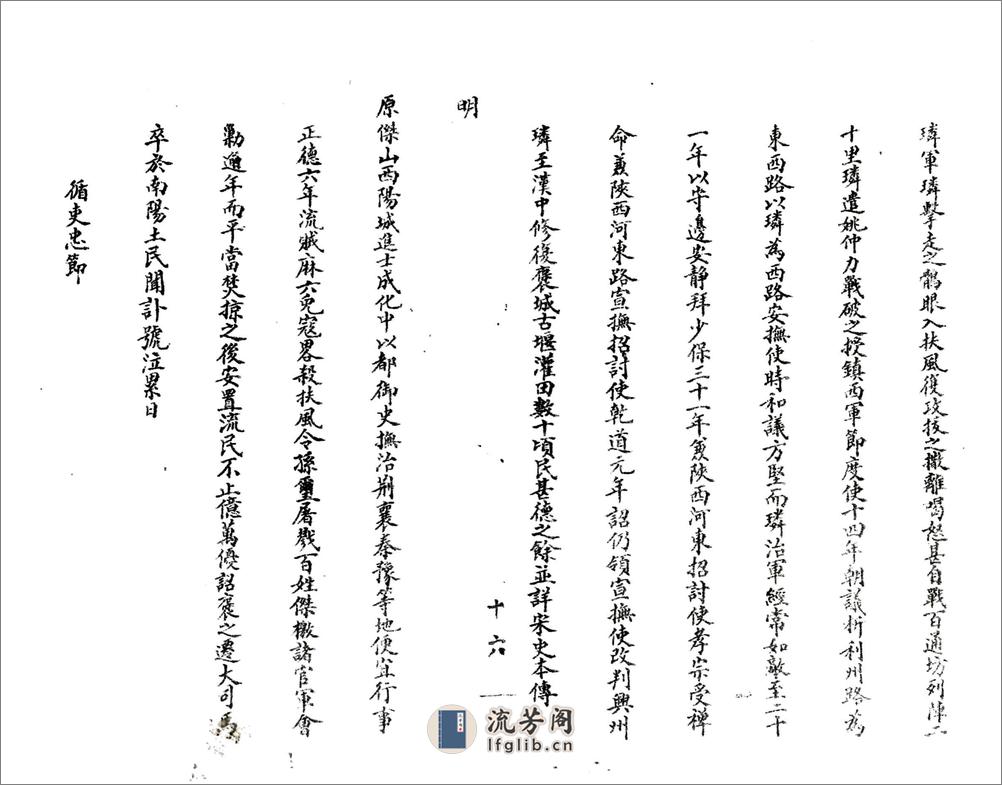 璘軍璘擊走之鶻眼入扶風復攻拔之撒離喝怒甚自戰百通坊列陣二
十里璘遣姚仲力戰破之授鎮西軍節度使十四年朝議析利州路為
東西路以璘為西路安撫使時和議方堅而璘治軍經常如敵至二十
一年以守邊安静拜少保三十一年兼陝西河東招討使孝宗受禅
命兼陝西河東路宣撫招討使乾道元年詔仍領宣撫使改判興州
璘至漢中修復褒城古堰灌田數十頃民甚德之餘並詳宋史本傳
十六
明
原傑山西陽城進士成化中以都御史撫治荆襄秦豫等地便宜行事
正德六年流贼麻六兔寇畧殺扶風令孫璽屠戮百姓傑檄諸官軍會
勦逾年而平當焚掠之後安置流民不止億萬優詔褒之遷大司馬
卒於南陽土民聞訃號泣累日
循吏忠節
流芳阁
lfglib.cn